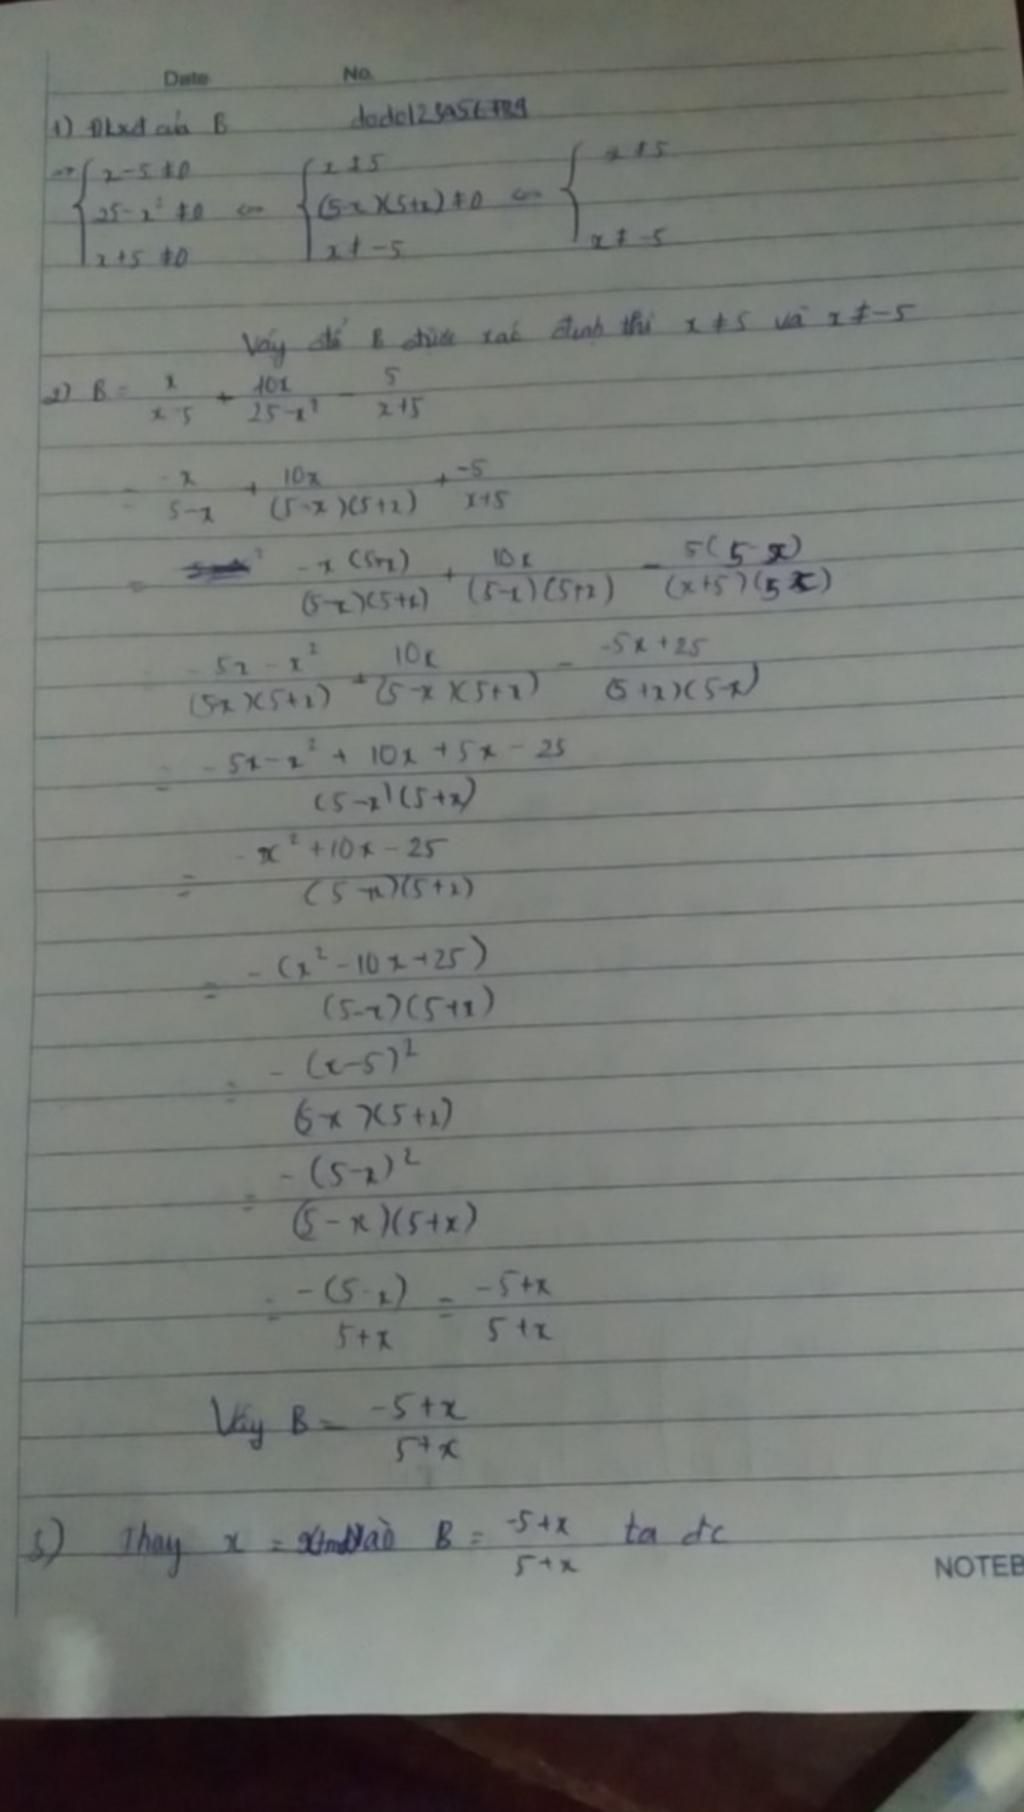 Date No.
1) Đkxđ của B dodo123456789
=> { x-5 ≠ 0 <=> { x ≠ 5 <=> { x ≠ 5
25-x² ≠ 0 (5-x)(5+x) ≠ 0
x+5 ≠ 0 x ≠ -5 x ≠ -5
Vậy để B được xác định thì x ≠ 5 và x ≠ -5
2) B = x/(x-5) + 10x/(25-x²) - 5/(x+5)
= -x/(5-x) + 10x/((5-x)(5+x)) + -5/(x+5)
= -x(5+x)/((5-x)(5+x)) + 10x/((5-x)(5+x)) - 5(5-x)/((x+5)(5-x))
-5x-x²/((5-x)(5+x)) + 10x/((5-x)(5+x)) - -5x+25/((5+x)(5-x))
= -5x-x²+10x+5x-25/((5-x)(5+x))
= -x²+10x-25/((5-x)(5+x))
= -(x²-10x+25)/((5-x)(5+x))
= -(x-5)²/((5-x)(5+x))
= -(5-x)²/((5-x)(5+x))
= -(5-x)/(5+x) = -5+x/(5+x)
Vậy B = -5+x/(5+x)
3) Thay x = vào B = -5+x/(5+x) ta đc
NOTEB